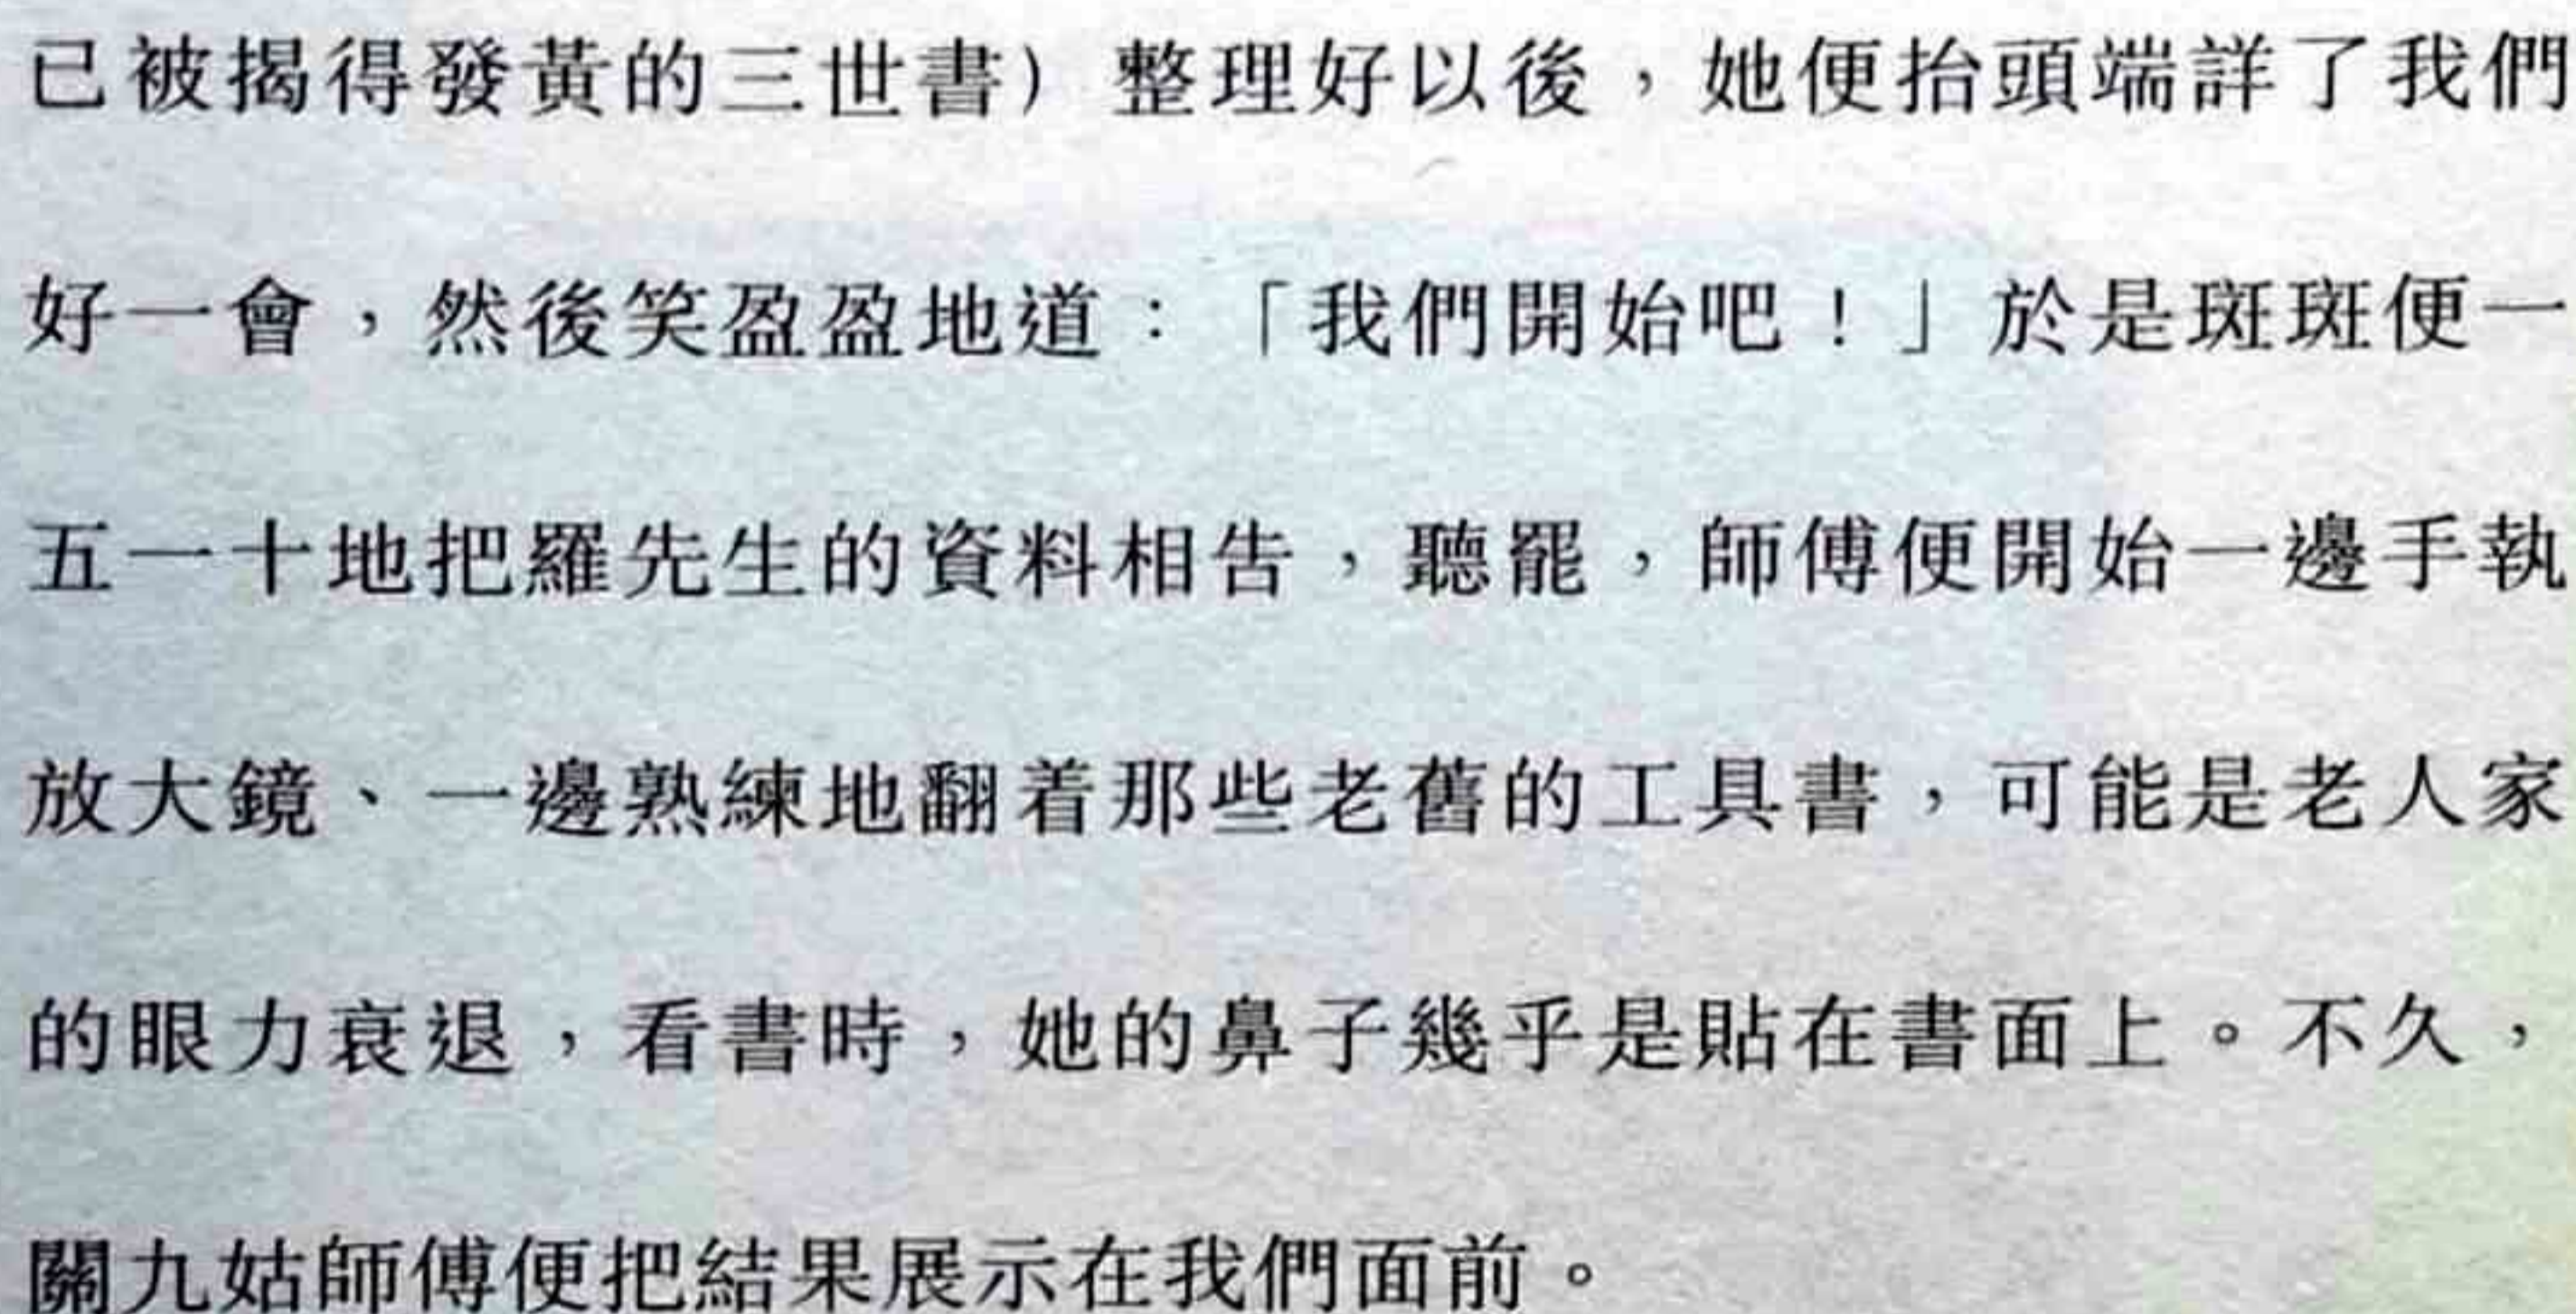 已被揭得發黃的三世書）整理好以後，她便抬頭端詳了我們
好一會，然後笑盈盈地道：「我們開始吧！」於是斑斑便一
五一十地把羅先生的資料相告，聽罷，師傅便開始一邊手執
放大鏡、一邊熟練地翻着那些老舊的工具書，可能是老人家
的眼力衰退，看書時，她的鼻子幾乎是貼在書面上。不久，
關九姑師傅便把結果展示在我們面前。